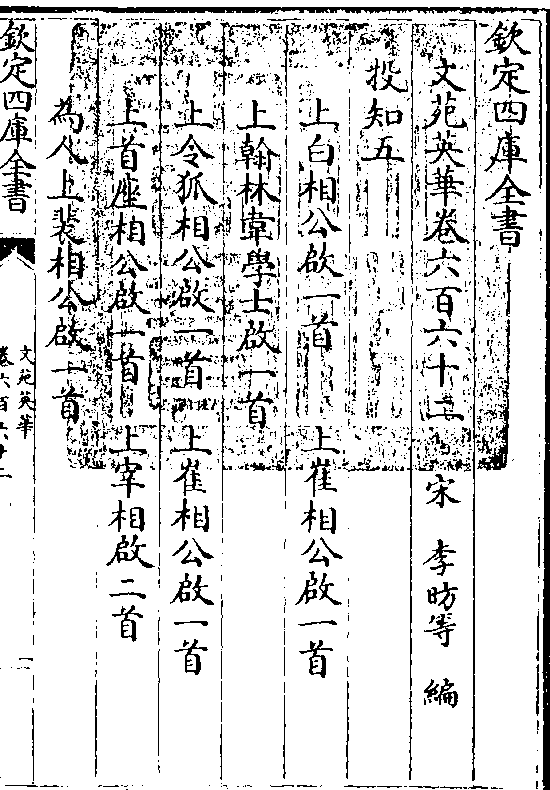 欽定四庫全書
文苑英華卷六百六十二 宋 李昉等 編
投知五
上白相公啟一首 上崔相公啟一首
上翰林韋學士啟一首
上令狐相公啟一首 上崔相公啟一首
上首座相公啟一首 上宰相啟二首
為人上裴相公啟一首
欽定四庫全書
文苑英華
卷六百六十二
一